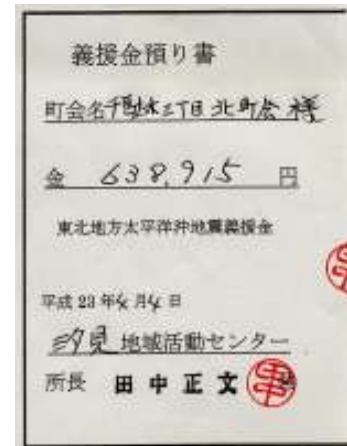 義援金預り書
町会名 千駄木三丁目北町会 様
金 638,915 円
東北地方太平洋沖地震義援金
平成 23 年 4 月 4 日
汐見 地域活動センター
所長 田中正文